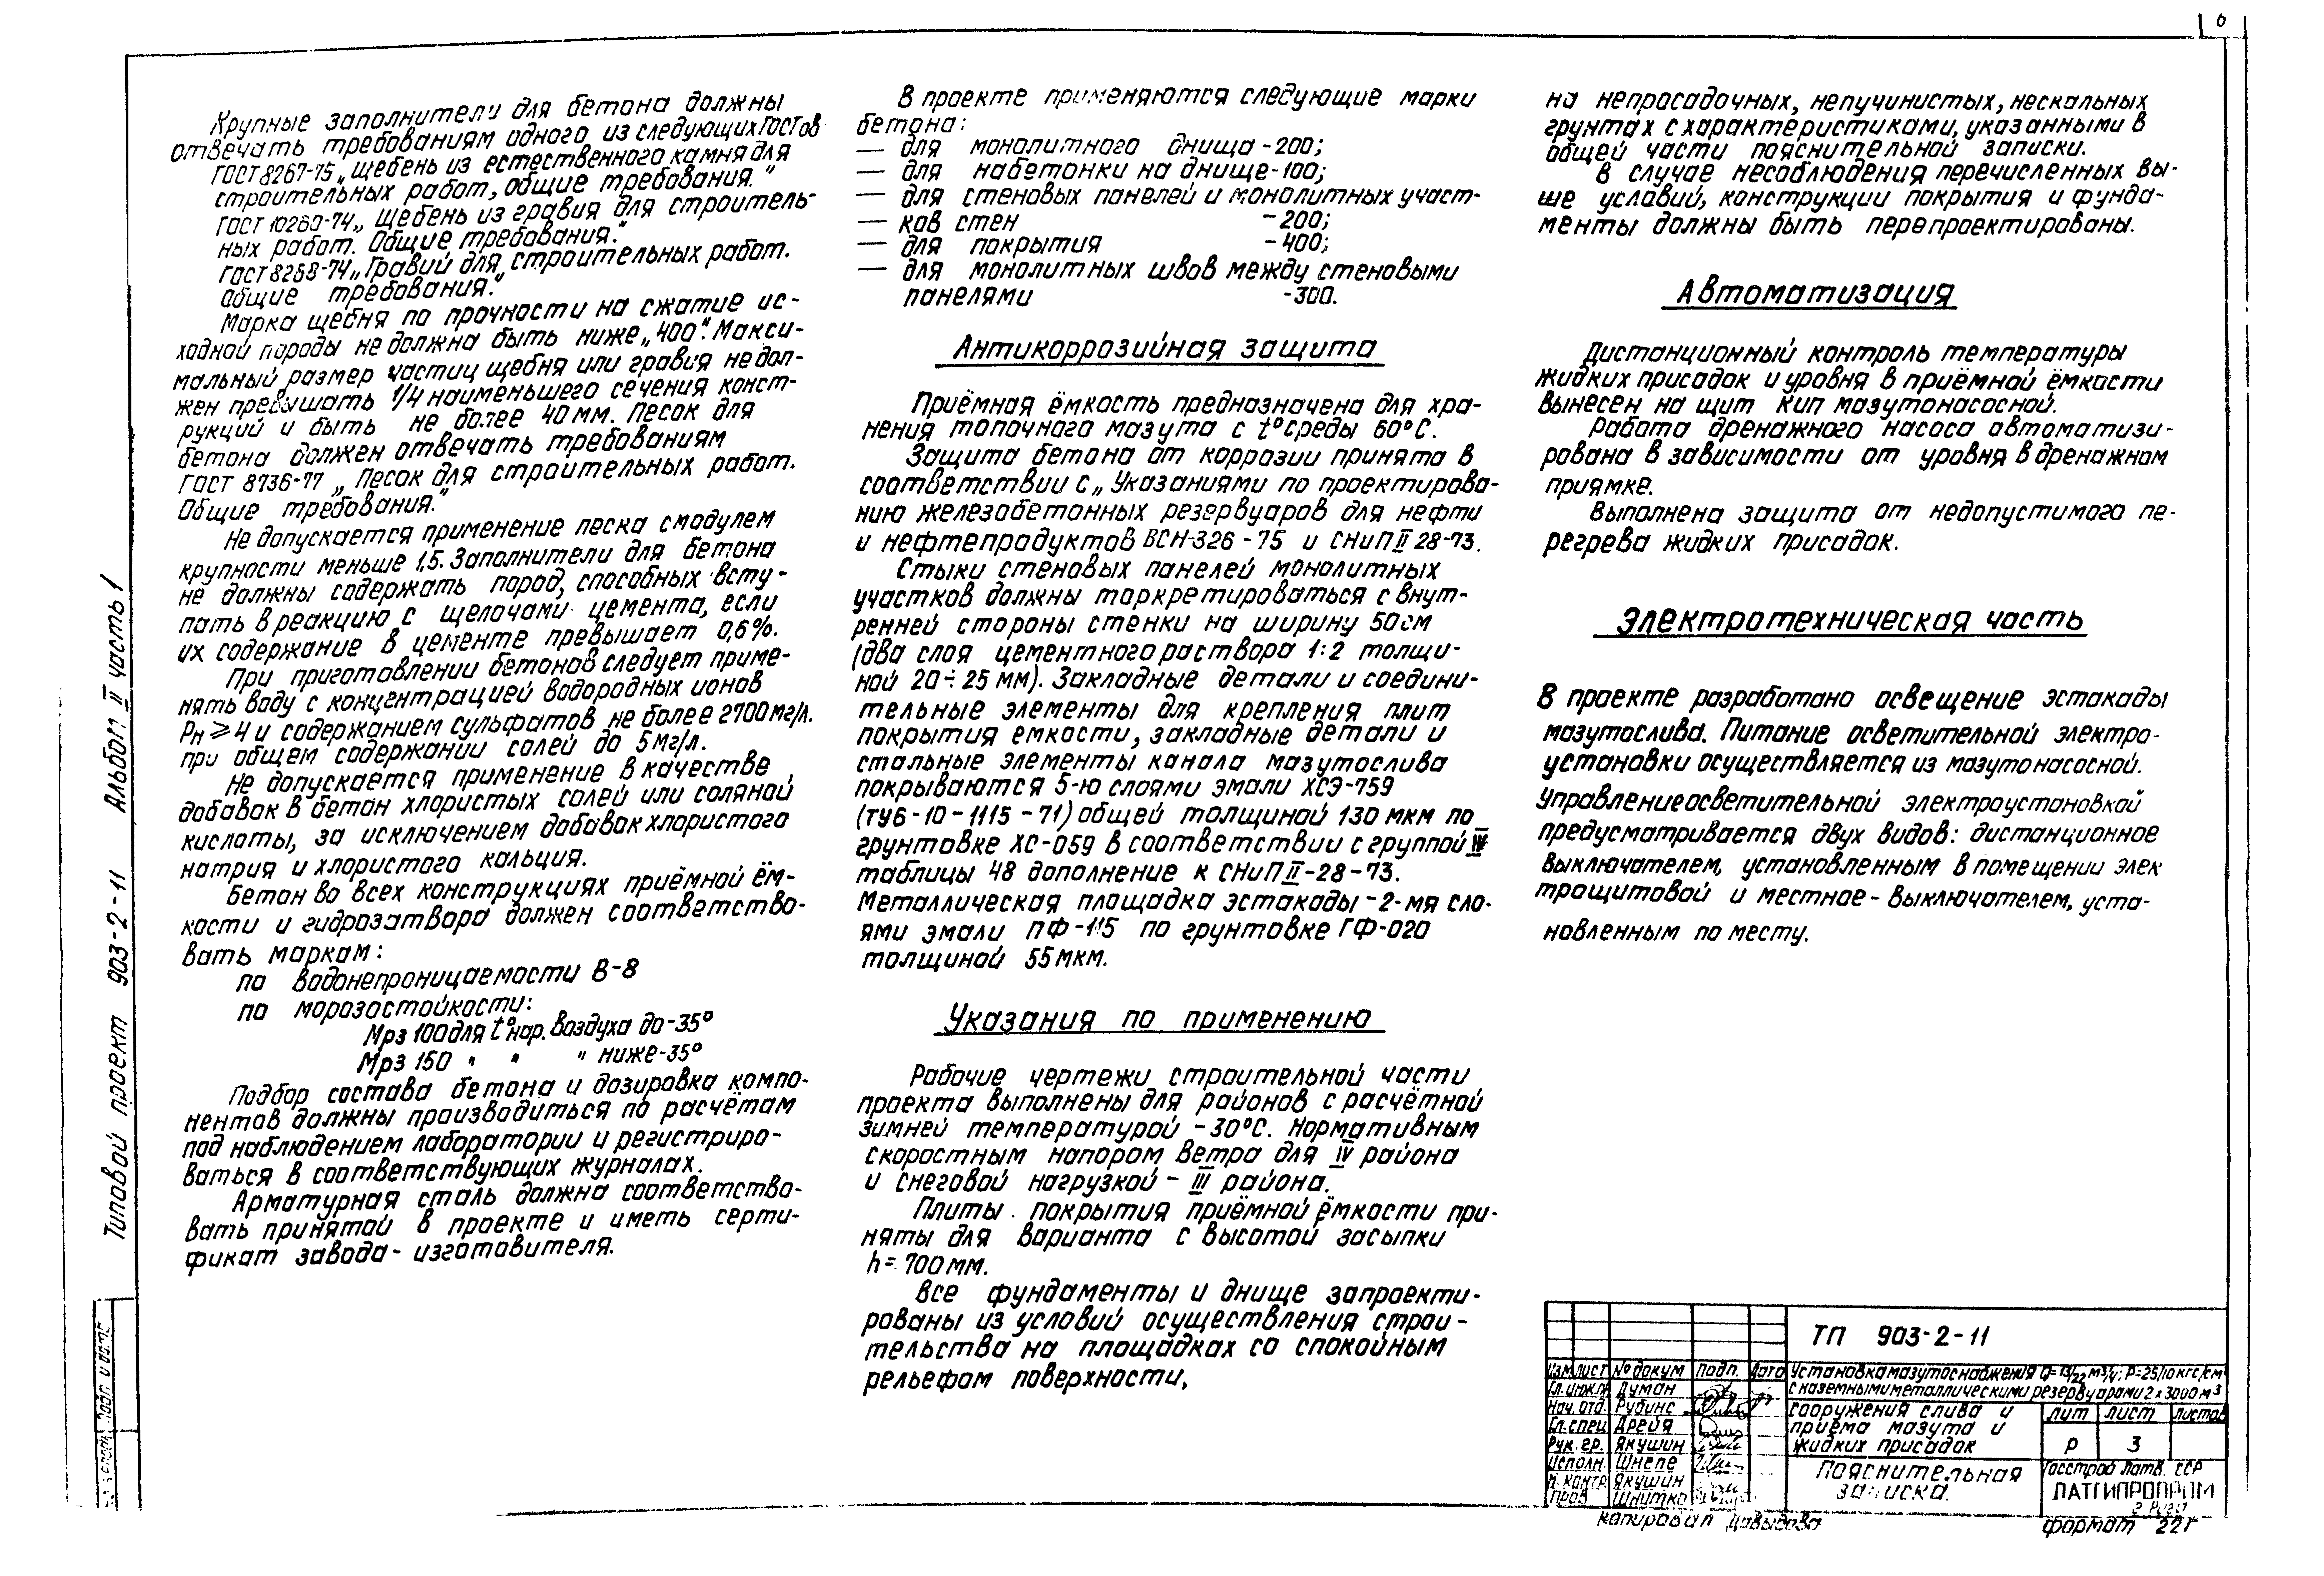 6
Крупные заполнители для бетона должны
отвечать требованиям одного из следующих ГОСТов
ГОСТ 8267-75 „Щебень из естественного камня для
строительных работ, общие требования."
ГОСТ 10260-74 „Щебень из гравия для строитель-
ных работ. Общие требования."
ГОСТ 8268-74 „Гравий для строительных работ.
Общие требования."
Марка щебня по прочности на сжатие ис-
ходной породы не должна быть ниже „400". Макси-
мальный размер частиц щебня или гравия не дол-
жен превышать 1/4 наименьшего сечения конст-
рукций и быть не более 40 мм. Песок для
бетона должен отвечать требованиям
ГОСТ 8736-77 „Песок для строительных работ.
Общие требования."
Не допускается применение песка с модулем
крупности меньше 1,5. Заполнители для бетона
не должны содержать пород, способных всту-
пать в реакцию с щелочами цемента, если
их содержание в цементе превышает 0,6%.
При приготовлении бетонов следует приме-
нять воду с концентрацией водородных ионов
Pн ⩾ 4 и содержанием сульфатов не более 2700 мг/л.
при общем содержании солей до 5 мг/л.
Не допускается применение в качестве
добавок в бетон хлористых солей или соляной
кислоты, за исключением добавок хлористого
натрия и хлористого кальция.
Бетон во всех конструкциях приёмной ём-
кости и гидрозатвора должен соответство-
вать маркам:
по водонепроницаемости В-8
по морозостойкости:
Мрз 100 для t° нар. воздуха до -35°
Мрз 150 " " " ниже -35°
Подбор состава бетона и дозировка компо-
нентов должны производиться по расчётам
под наблюдением лаборатории и регистриро-
ваться в соответствующих журналах.
Арматурная сталь должна соответство-
вать принятой в проекте и иметь серти-
фикат завода-изготовителя.
В проекте применяются следующие марки
бетона:
— для монолитного днища -200;
— для набетонки на днище -100;
— для стеновых панелей и монолитных участ-
— ков стен -200;
— для покрытия -400;
— для монолитных швов между стеновыми
панелями -300.
Антикоррозийная защита
Приёмная ёмкость предназначена для хра-
нения топочного мазута с t° среды 60°С.
Защита бетона от коррозии принята в
соответствии с „Указаниями по проектирова-
нию железобетонных резервуаров для нефти
и нефтепродуктов ВСН-326-75 и СНиП II 28-73.
Стыки стеновых панелей монолитных
участков должны торкретироваться с внут-
ренней стороны стенки на ширину 50 см
(два слоя цементного раствора 1:2 толщи-
ной 20÷25 мм). Закладные детали и соедини-
тельные элементы для крепления плит
покрытия емкости, закладные детали и
стальные элементы канала мазутослива
покрываются 5-ю слоями эмали ХСЭ-759
(ТУ6-10-1115-71) общей толщиной 130 мкм по
грунтовке ХС-059 в соответствии с группой IV
таблицы 48 дополнение к СНиП II-28-73.
Металлическая площадка эстакады -2-мя сло-
ями эмали ПФ-115 по грунтовке ГФ-020
толщиной 55 мкм.
Указания по применению
Рабочие чертежи строительной части
проекта выполнены для районов с расчётной
зимней температурой -30°С. Нормативным
скоростным напором ветра для IV района
и снеговой нагрузкой - III района.
Плиты покрытия приёмной ёмкости при-
няты для варианта с высотой засыпки
h = 700 мм.
Все фундаменты и днище запроекти-
рованы из условий осуществления строи-
тельства на площадках со спокойным
рельефом поверхности,
на непросадочных, непучинистых, нескальных
грунтах с характеристиками, указанными в
общей части пояснительной записки.
В случае несоблюдения перечисленных вы-
ше условий, конструкции покрытия и фунда-
менты должны быть перепроектированы.
Автоматизация
Дистанционный контроль температуры
жидких присадок и уровня в приёмной ёмкости
вынесен на щит КИП мазутонасосной.
Работа дренажного насоса автоматизи-
рована в зависимости от уровня в дренажном
приямке.
Выполнена защита от недопустимого пе-
регрева жидких присадок.
Электротехническая часть
В проекте разработано освещение эстакады
мазутослива. Питание осветительной электро-
установки осуществляется из мазутонасосной.
Управление осветительной электроустановкой
предусматривается двух видов: дистанционное
выключателем, установленным в помещении элек
трощитовой и местное - выключателем, уста-
новленным по месту.
Типовой проект 903-2-11 Альбом II часть 1
Подп. и дата
ТП 903-2-11
Изм. лист № докум Подп. Дата
Гл. инж. пр Думан
Нач. отд. Рубинс
Гл. спец Дрейя
Рук. гр. Якушин
Исполн. Шнепе
Н. контр. Якушин
Пров Шнитко
Установка мазутоснабжения Q=13/22 м³/ч; Р=25/10 кгс/см²
с наземными металлическими резервуарами 2 х 3000 м³
Сооружения слива и
приема мазута и
жидких присадок
лит лист листов
Р 3
Пояснительная
записка.
Госстрой Латв. ССР
ЛАТГИПРОПРОМ
г. Рига
Копировал Давыдова
формат 22г